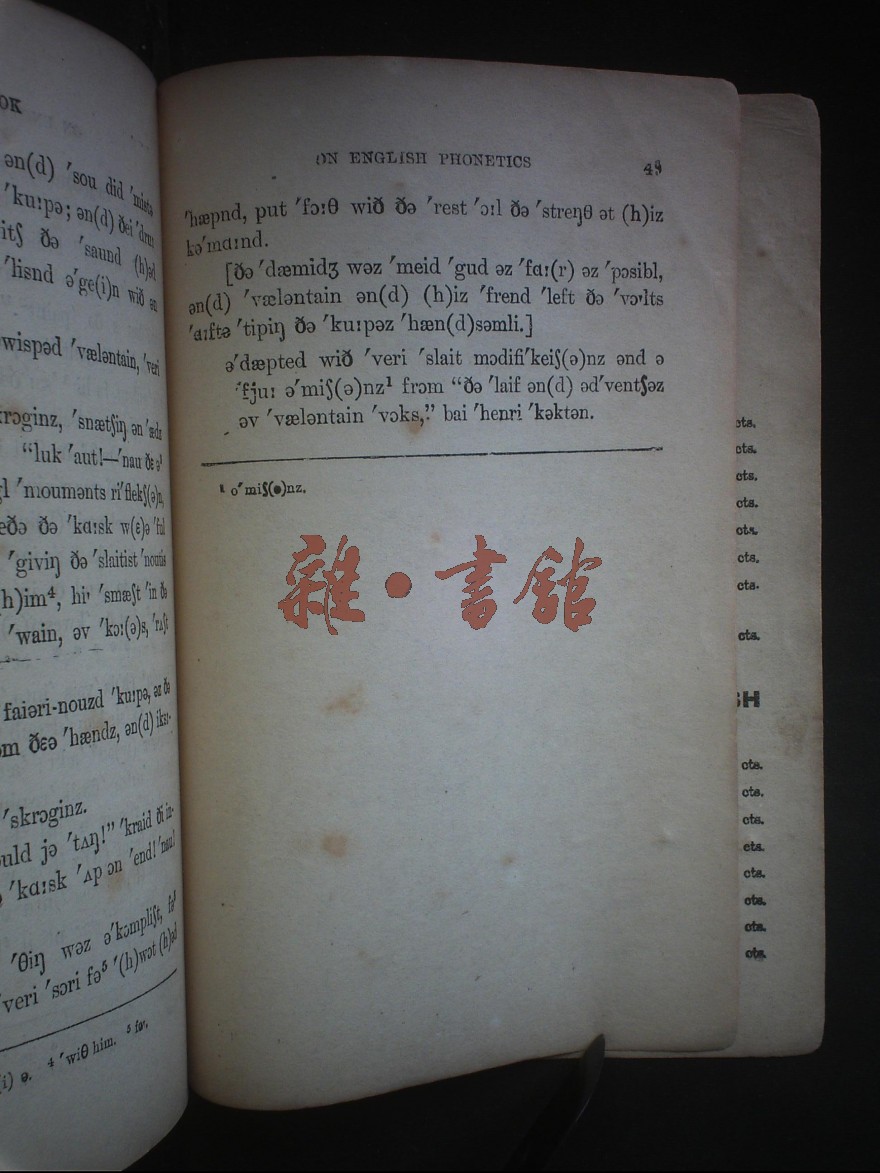 OK
ən(d) ′sou did ′mistə
′kuːpə; ən(d) ðei ′dru
itʃ ðə ′saund (h)əd
′lisnd ə′ge(i)n wið ən
wispəd ′væləntain, ′veri
krɔginz, ′snætʃiŋ ən ′ædz
“luk ′aut!—′nau ðɛ ə′
gl ′moumənts ri′flekʃ(ə)n,
eðə ðə ′kɑːsk w(ɛ)ə ′ful
′giviŋ ðə ′slaitist ′noutis
(h)im⁴, hi′ ′smæʃt ′in ðə
′wain, əv ′kɔː(ə)s, ′rʌʃt
faiəri-nouzd ′kuːpə, əz ðə
om ðɛə ′hændz, ən(d) iks-
′skrɔginz.
ould jə ′tʌŋ!” ′kraid ði in-
′kɑːsk ′ʌp ən ′end! ′nau!
′θiŋ wəz ə′kɔmpliʃt, fə′
′veri ′sɔri fə⁵ ′(h)wɔt (h)əd
(i) ə. ⁴ ′wiθ him. ⁵ fə′.
ON ENGLISH PHONETICS
49
′hæpnd, put ′fɔːθ wið ðə ′rest ′ɔːl ðə ′streŋθ ət (h)iz
kə′mɑːnd.
[ðə ′dæmidʒ wəz ′meid ′gud əz ′fɑː(r) əz ′pɔsibl,
ən(d) ′væləntain ən(d) (h)iz ′frend ′left ðə ′vɔ′lts
′ɑːftə ′tipiŋ ðə ′kuːpəz ′hæn(d)səmli.]
ə′dæpted wið ′veri ′slait mɔdifi′keiʃ(ə)nz ənd ə
′fjuː ə′miʃ(ə)nz¹ frɔm “ðə ′laif ən(d) əd′ventʃəz
əv ′væləntain ′vɔks,” bai ′henri ′kɔktən.
¹ o′miʃ(ə)nz.
雜·書館
cts.
cts.
cts.
cts.
cts.
cts.
cts.
cts.
SH
cts.
cts.
cts.
cts.
cts.
cts.
cts.
cts.